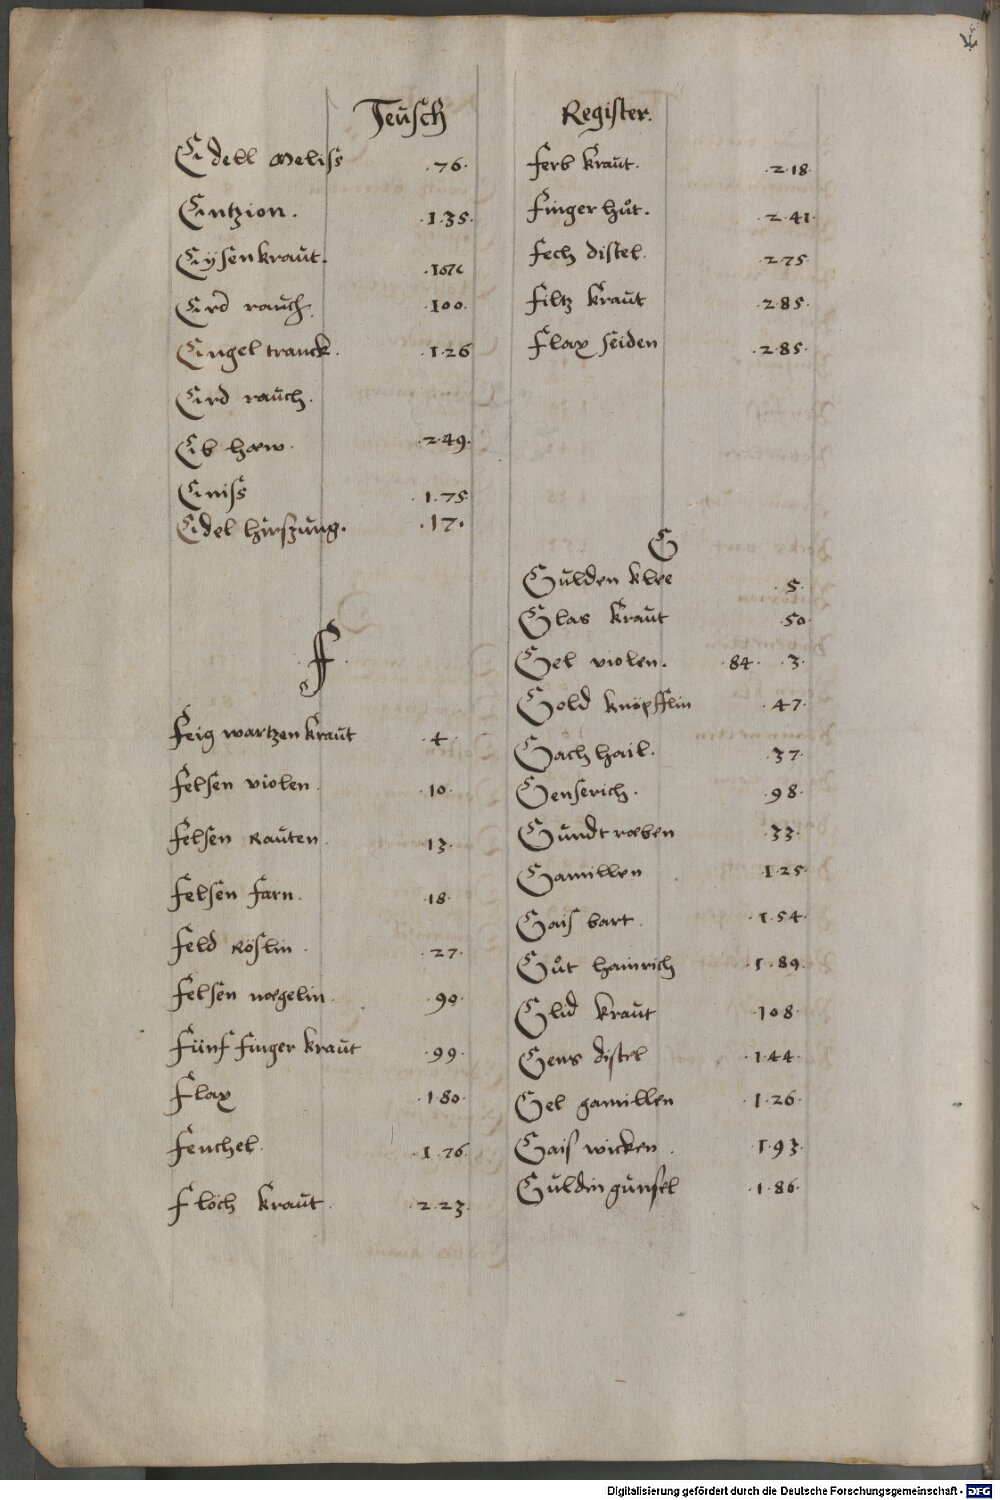 Teüsch Register.
Edell Meliss .76.
Entzion. .1.35.
Eÿsenkraüt.
Erd raüch. .100.
Engel tranck. .1.26
Erd raüch.
Eb hæw. .2.49.
Eniss .1.75.
Edel hirszüng. .17.
F
Feig wartzen kraüt .4.
Felsen violen. .10.
Felsen Raüten. .13.
Felsen farn. .18.
Feld Röslin. .27.
Felsen nægelin. .90.
Fünf finger kraüt .99.
Flax .180.
Fenchel. .1.76.
Flöch kraüt. .2.23.
Ferb kraüt. .2.18.
Finger hůt. .2.41.
Fech distel. .275.
Filtz kraüt .285.
Flax seiden .285.
G
Gülden klee .5.
Glas kraüt .50.
Gel violen. .84. .3.
Gold knöpfflin .47.
Gach hail. .37.
Genserich. .98.
Gündt ræben .33.
Gamillen .1.25.
Gais bart. .1.54.
Gůt hainrich .1.89.
Glid kraüt .108.
Gens distel .1.44.
Gel gamillen .1.26.
Gais wicken. .1.93.
Güldin günsel .1.86.
Digitalisierung gefördert durch die Deutsche Forschungsgemeinschaft - DFG